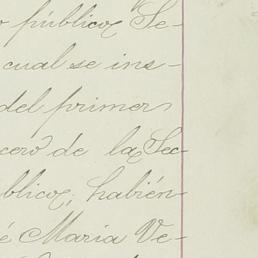 o públicos Se-
cual se ins-
del primer
cero de la Sec
blicos; habién-
é Maria Ve-